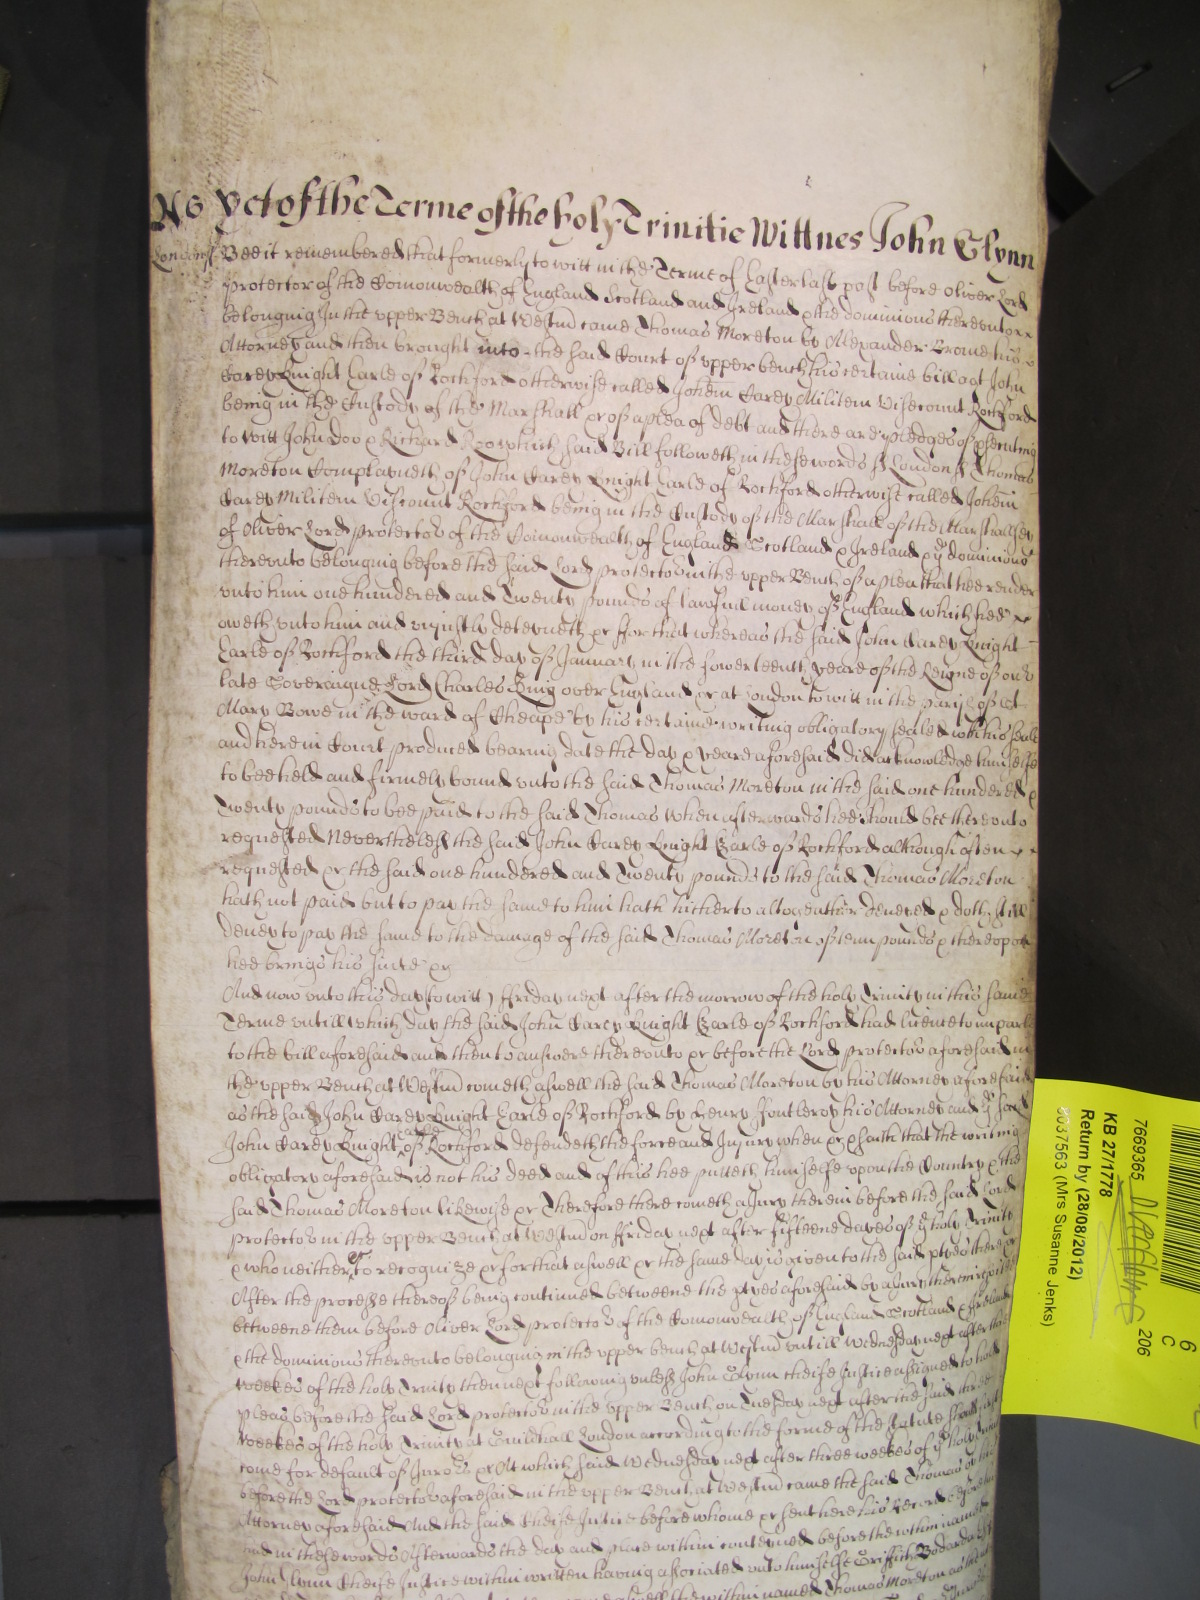 No Yet of the Terme of the holy Trinitie Wittnes John Glynn
London ss Bee it remembered that formerly to witt in the Terme of Easter last past before Oliver Lord
Protector of the Comonwealth of England Scotland and Ireland & the dominions thereunto
belonging In the upper Bench at Westm came Thomas Moreton by Alexander Brome his
Attorney and then brought into the said Court of upper bench his certaine bill agt John
Carey Knight Earle of Rochford otherwise called Johem Carey Militem Viscount Rochford
being in the Custody of the Marshall &c of a plea of debt and there are pledges of psecuting
to witt John Doo & Richard Roo which said Bill followeth in these words ss London ss Thomas
Moreton Complayneth of John Carey Knight Earle of Rochford otherwise called Johem
Carey Militem Viscount Rochford being in the Custody of the Marshall of the Marshallsey
of Oliver Lord protector of the Comonwealth of England Scotland & Ireland & ye dominions
thereunto belonging before the said Lord protector in the upper Bench of a plea that hee render
unto him one hundered and Twenty pounds of lawfull money of England which hee
oweth unto him and uniustly deteyneth &c for that whereas the said John Carey Knight
Earle of Rochford the third day of January in the fowerteenth yeare of the Reigne of our
late Soveraigne Lord Charles King over England &c at London to witt in the parish of St
Mary Bowe in the ward of Cheape by his certaine writing obligatory sealed with his seale
and here in Court produced bearing date the day & yeare aforesaid did acknowledge himselfe
to bee held and firmely bound unto the said Thomas Moreton in the said one hundered &
Twenty pounds to bee paid to the said Thomas when afterwards hee should bee thereunto
requested Neverthelesse the said John Carey Knight Earle of Rochford although often
requested &c the said one hundered and Twenty pounds to the said Thomas Moreton
hath not paid but to pay the same to him hath hitherto altogeather denyed & doth still
deney to pay the same to the damage of the said Thomas Moreton of tenn pounds & thereupon
hee brings his suite &c
And now unto this day to witt Friday next after the morrow of the holy Trinity in this same
Terme untill which day the said John Carey Knight Earle of Rochford had licence to imparle
to the bill aforesaid and then to answere thereunto &c before the Lord protector aforesaid in
the upper Bench at Westm cometh aswell the said Thomas Moreton by his Attorney aforesaid
as the said John Carey Knight Earle of Rochford by Henry Fontleroy his Attorney and ye said
John Carey Knight Earle of Rochford defendeth the force and Injury when &c & saith that the writing
obligatory aforesaid is not his deed and of this hee putteth himselfe upon the Country & the
said Thomas Moreton likewise &c Therefore there cometh a Jury therein before the said Lord
protector in the upper Bench at Westm on Friday next after fifteene dayes of ye holy Trinity
& who neither &c to recognize &c for that aswell &c the same day is given to the said ptyes there &c
After the processe thereof being continued betweene the ptyes aforesaid by a Jury therein
betweene them before Oliver Lord protector of the Comonwealth of England Scotland & Ireland
& the dominions thereunto belonging in the upper bench at Westm untill Wednesday next after three
weekes of the holy Trinity then next following unless John Glynn cheife Justice assigned to hold
pleas before the said Lord protector in the upper Bench on Tuesday next after the said three
weekes of the holy Trinity at Guildhall London according to the forme of the Statute shall first
come for default of Jurors &c At which said Wednesday next after three weekes of ye holy Trinity
before the Lord protector aforesaid in the upper Bench at Westm came the said Thomas by his
Attorney aforesaid And the said Cheife Justice before whome &c sent here his Record before
had in these words Afterwards the day and place within conteyned before the within named
John Glynn Cheife Justice within written having associated unto himselfe Griffith Bodurda
aswell the within named Thomas Moreton as
7669365
KB 27/1778
Return by (28/08/2012)
3037563 (Mrs Susanne Jenks)
206
6
C